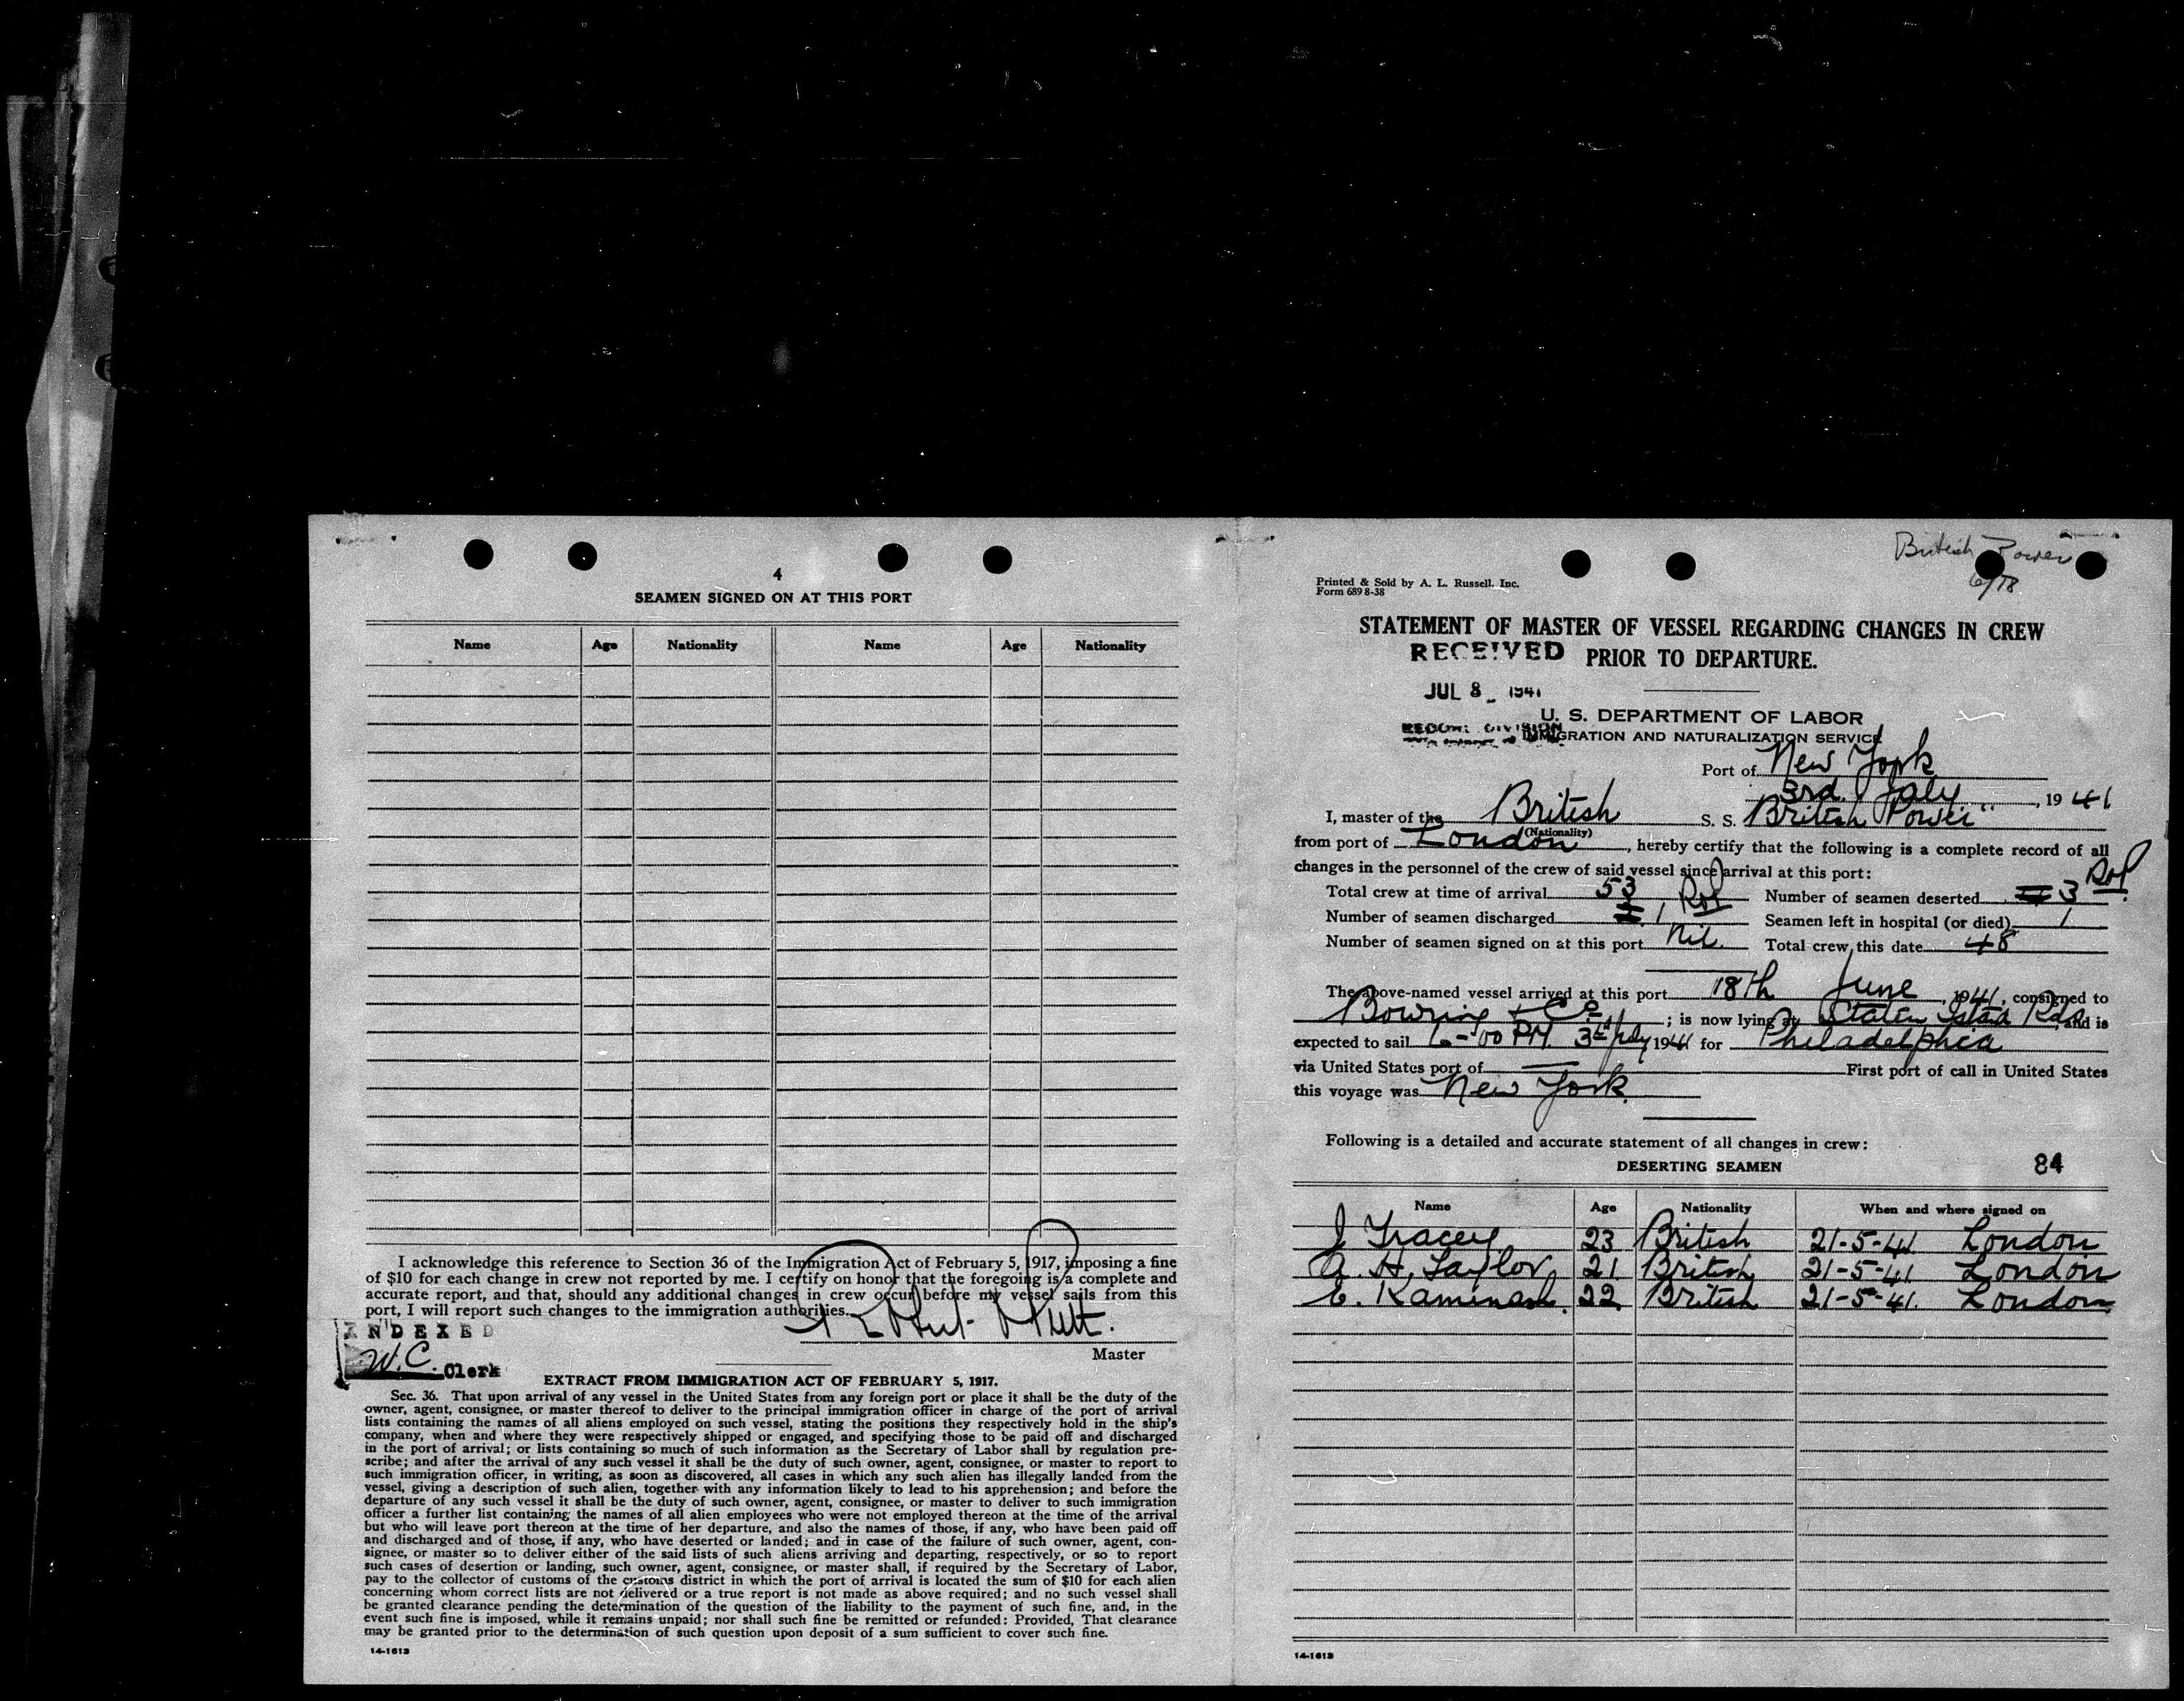 4
SEAMEN SIGNED ON AT THIS PORT
Name Age Nationality Name Age Nationality
I acknowledge this reference to Section 36 of the Immigration Act of February 5, 1917, imposing a fine
of $10 for each change in crew not reported by me. I certify on honor that the foregoing is a complete and
accurate report, and that, should any additional changes in crew occur before my vessel sails from this
port, I will report such changes to the immigration authorities.
INDEXED
W.C. Clerk
Master
EXTRACT FROM IMMIGRATION ACT OF FEBRUARY 5, 1917.
Sec. 36. That upon arrival of any vessel in the United States from any foreign port or place it shall be the duty of the
owner, agent, consignee, or master thereof to deliver to the principal immigration officer in charge of the port of arrival
lists containing the names of all aliens employed on such vessel, stating the positions they respectively hold in the ship's
company, when and where they were respectively shipped or engaged, and specifying those to be paid off and discharged
in the port of arrival; or lists containing so much of such information as the Secretary of Labor shall by regulation pre-
scribe; and after the arrival of any such vessel it shall be the duty of such owner, agent, consignee, or master to report to
such immigration officer, in writing, as soon as discovered, all cases in which any such alien has illegally landed from the
vessel, giving a description of such alien, together with any information likely to lead to his apprehension; and before the
departure of any such vessel it shall be the duty of such owner, agent, consignee, or master to deliver to such immigration
officer a further list containing the names of all alien employees who were not employed thereon at the time of the arrival
but who will leave port thereon at the time of her departure, and also the names of those, if any, who have been paid off
and discharged and of those, if any, who have deserted or landed; and in case of the failure of such owner, agent, con-
signee, or master so to deliver either of the said lists of such aliens arriving and departing, respectively, or so to report
such cases of desertion or landing, such owner, agent, consignee, or master shall, if required by the Secretary of Labor,
pay to the collector of customs of the customs district in which the port of arrival is located the sum of $10 for each alien
concerning whom correct lists are not delivered or a true report is not made as above required; and no such vessel shall
be granted clearance pending the determination of the question of the liability to the payment of such fine, and, in the
event such fine is imposed, while it remains unpaid; nor shall such fine be remitted or refunded: Provided, That clearance
may be granted prior to the determination of such question upon deposit of a sum sufficient to cover such fine.
14-1613
British Power
6/18
Printed & Sold by A. L. Russell, Inc.
Form 689 8-38
STATEMENT OF MASTER OF VESSEL REGARDING CHANGES IN CREW
RECEIVED PRIOR TO DEPARTURE.
JUL 8 1941
U. S. DEPARTMENT OF LABOR
IMMIGRATION AND NATURALIZATION SERVICE
Port of New York
3rd July, 1941
I, master of the British S. S. "British Power"
(Nationality)
from port of London, hereby certify that the following is a complete record of all
changes in the personnel of the crew of said vessel since arrival at this port:
Total crew at time of arrival 53 Number of seamen deserted 3
Number of seamen discharged 1 Seamen left in hospital (or died) 1
Number of seamen signed on at this port Nil. Total crew this date 48
The above-named vessel arrived at this port 18th June, 1941, consigned to
Bowring & Co; is now lying at Staten Island Rds, and is
expected to sail 6-00 PM. 3rd July 1941 for Philadelphia
via United States port of — First port of call in United States
this voyage was New York.
Following is a detailed and accurate statement of all changes in crew:
DESERTING SEAMEN 84
Name Age Nationality When and where signed on
J Tracey 23 British 21-5-41 London
A. H. Taylor 21 British 21-5-41 London
E. Kaminash. 22 British 21-5-41. London
14-1613